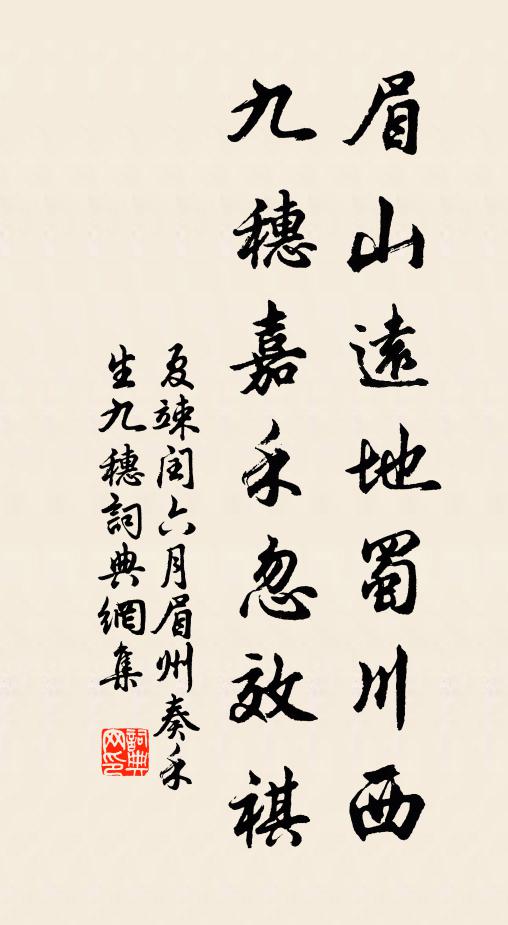 眉山遠地蜀川西
九穗嘉禾忽效祺
夏竦閏六月眉州奏禾
生九穗詞典網集
詞典
网印